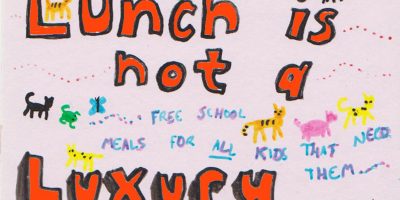 Lunch is
not a
FREE SCHOOL
MEALS FOR ALL KIDS THAT NEED
THEM
Luxury